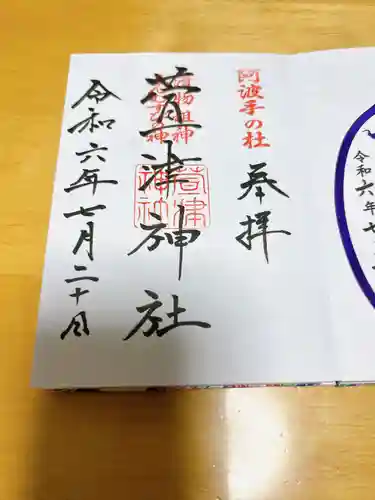 阿波手の杜
奉拝
漬物祖神
萱津神社
萱津
神社
令和六年七月二十日
令和六年七